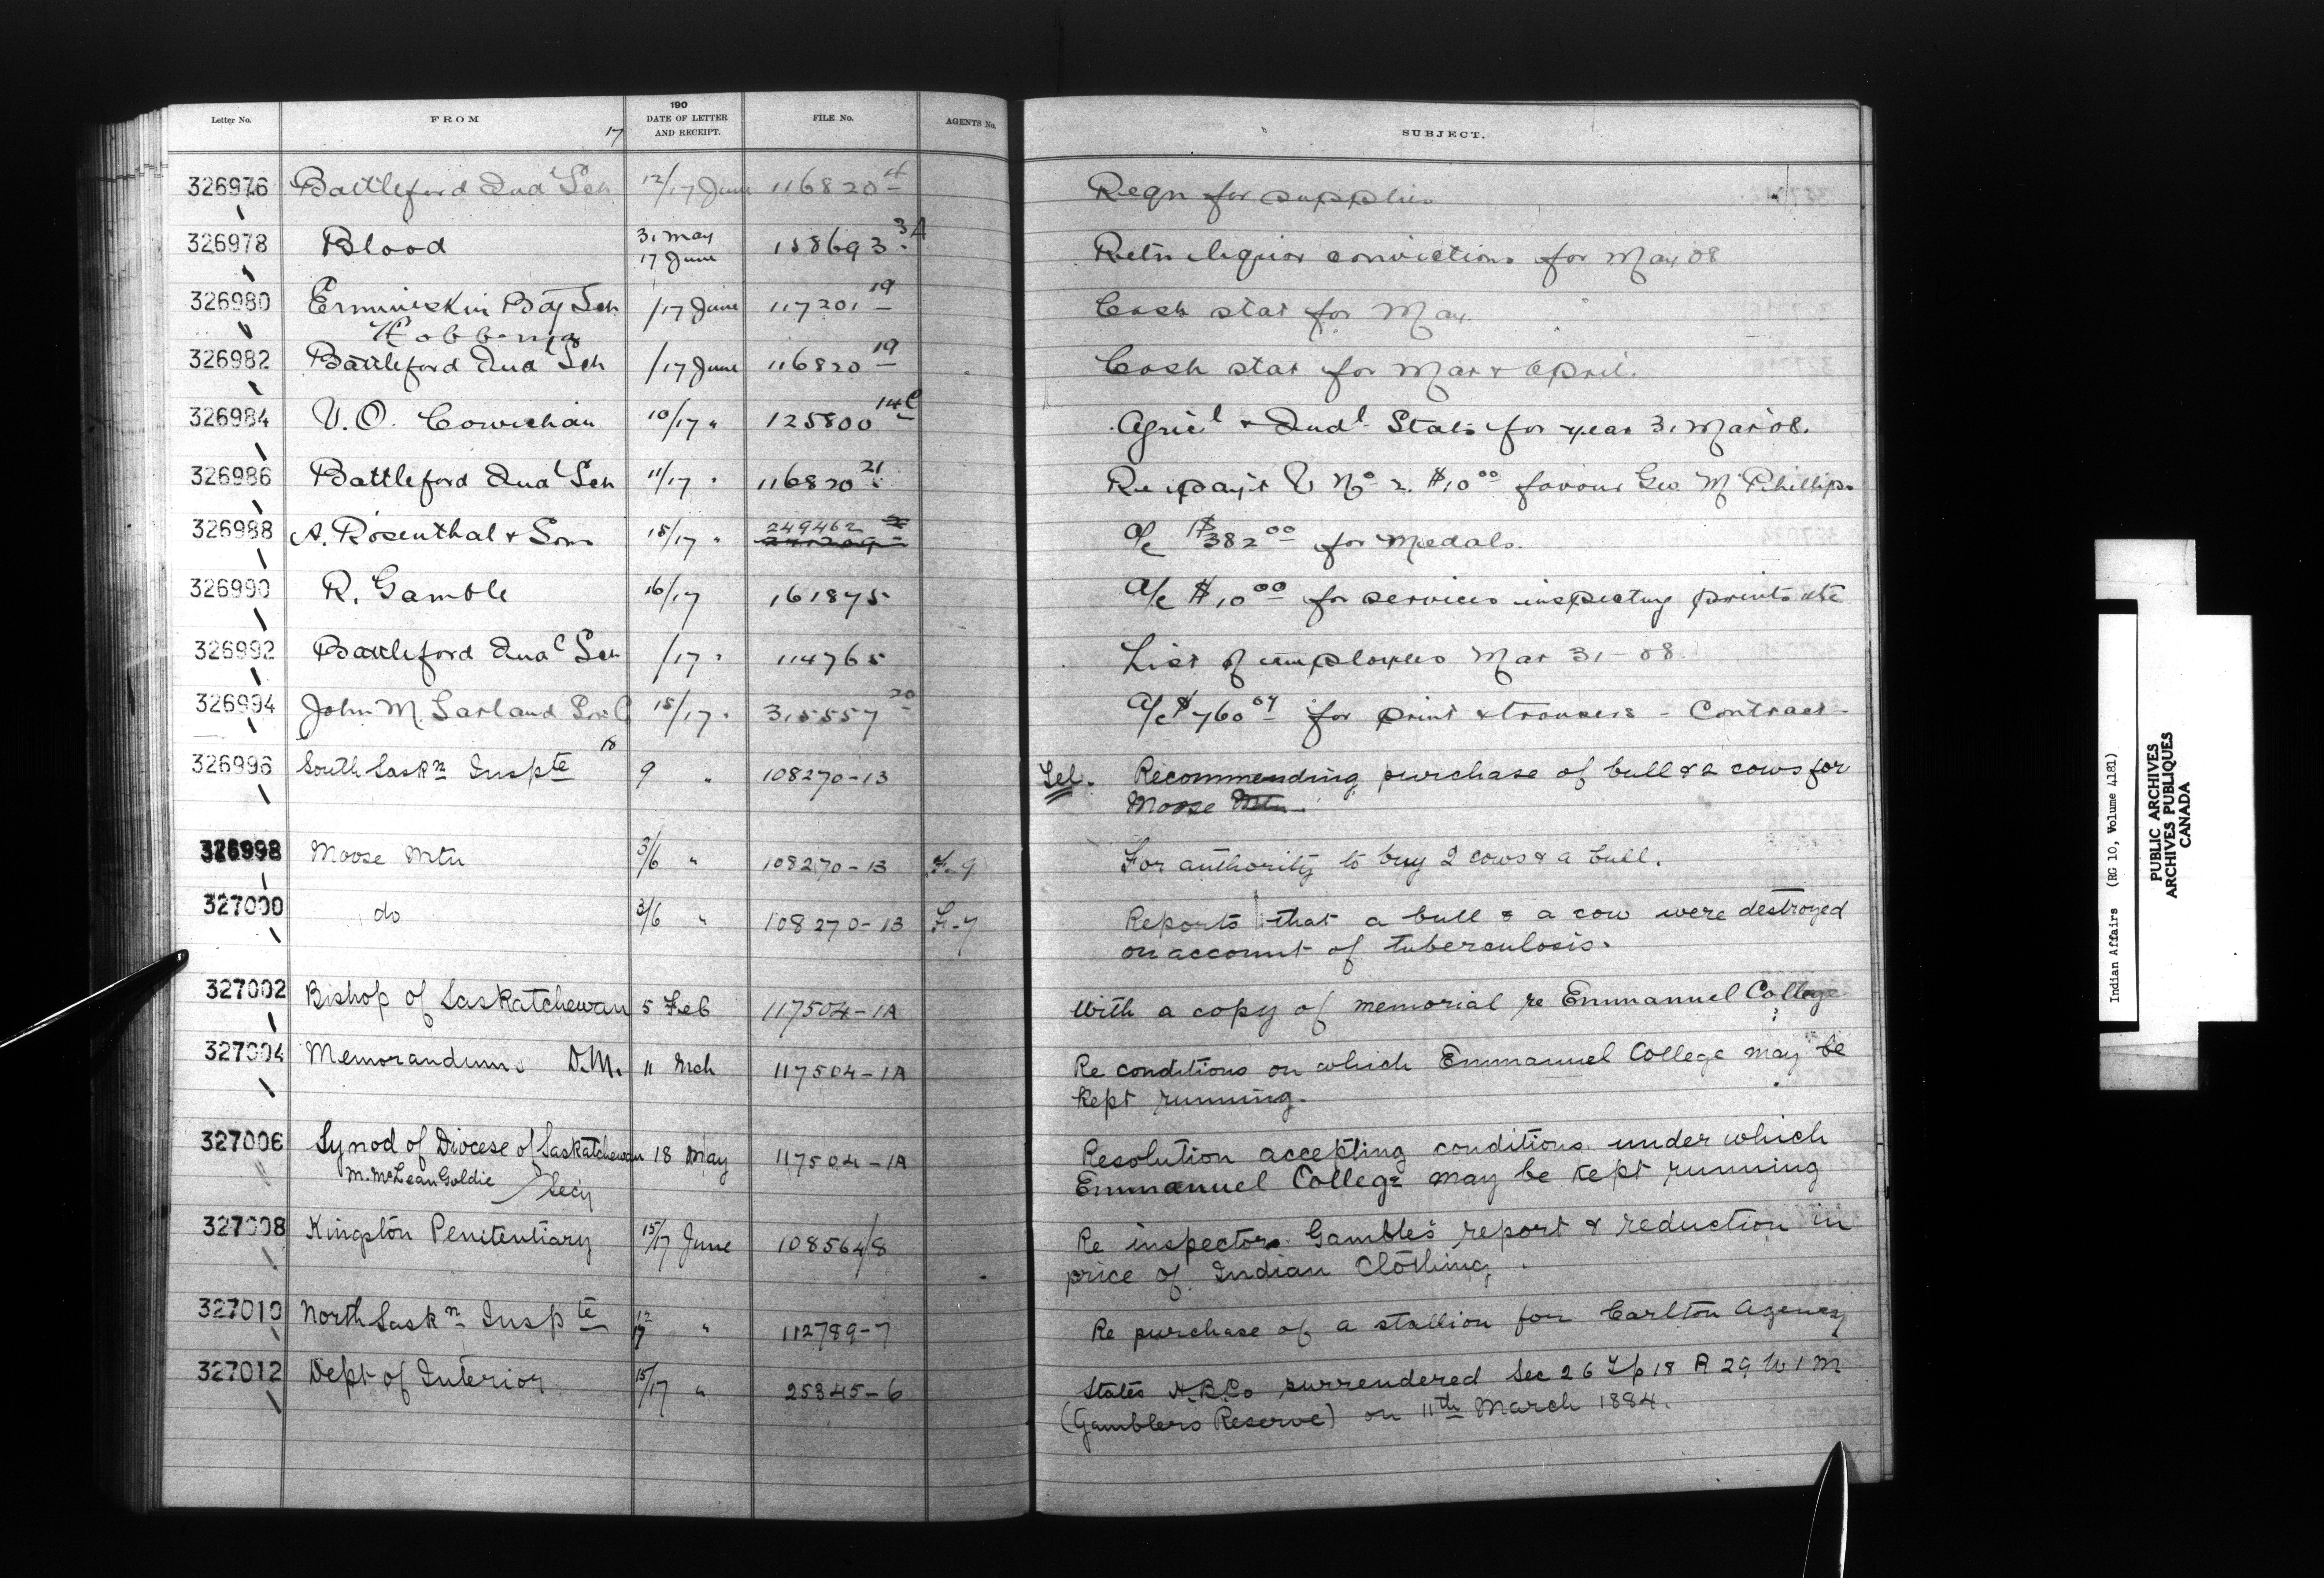 190
Letter No. FROM DATE OF LETTER AND RECEIPT. FILE No. AGENTS No. SUBJECT.
17
326976 Battleford Indl Sch 12/17 June 116820-4 Reqn for supplies
326978 Blood 31 May 17 June 158693-3A Retn liquor convictions for May 08
326980 Ermineskin Bdg Sch /17 June 117201-19 Cash stat for May
Hobbema
18
326982 Battleford Indl Sch /17 June 116820-19 Cash stat for Mar & April.
326984 V. O. Cowichan 10/17 " 125800-14C Agricl & Indl Stats for year 31 Mar 08.
326986 Battleford Indl Sch 11/17 " 116820-21 Re paýt V No 2. $10 00 favour Geo. McPhillips
326988 A. Rosenthal & Sons 15/17 " 249462-2 a/c $382 00 for Medals.
326990 R. Gamble 16/17 161875 a/c $10 00 for services inspecting prints etc
326992 Battleford Indl Sch /17 " 114765 List of employees Mar 31-08.
326994 John M. Garland Son C 15/17 " 315557-20 a/c $760 67 for print & trousers - Contract-
18
326996 South Saskn Inspte 9 " 108270-13 Tel. Recommending purchase of bull & 2 cows for
Moose Mtn.
326998 Moose Mtn 3/6 " 108270-13 F-9 For authority to buy 2 cows & a bull.
327000 do 3/6 " 108270-13 F-7 Reports that a bull & a cow were destroyed
on account of tuberculosis.
327002 Bishop of Saskatchewan 5 Feb 117504-1A With a copy of memorial re Emmanuel College
327004 Memorandum D.M. 11 Mch 117504-1A Re conditions on which Emmanuel College may be
kept running.
327006 Synod of Diocese of Saskatchewan 18 May 117504-1A Resolution accepting conditions under which
M. McLean Goldie Secy Emmanuel College may be kept running
327008 Kingston Penitentiary 15/17 June 108564/8 Re inspector Gamble's report & reduction in
price of Indian Clothing.
327010 North Saskn Inspte 12/17 " 112789-7 Re purchase of a stallion for Carlton Agency
327012 Dept of Interior 15/17 " 25345-6 States H.B.Co surrendered Sec 26 Tp 18 R 29 W 1 M
(Gamblers Reserve) on 11th March 1884.
Indian Affairs (RG 10, Volume 4181)
PUBLIC ARCHIVES
ARCHIVES PUBLIQUES
CANADA